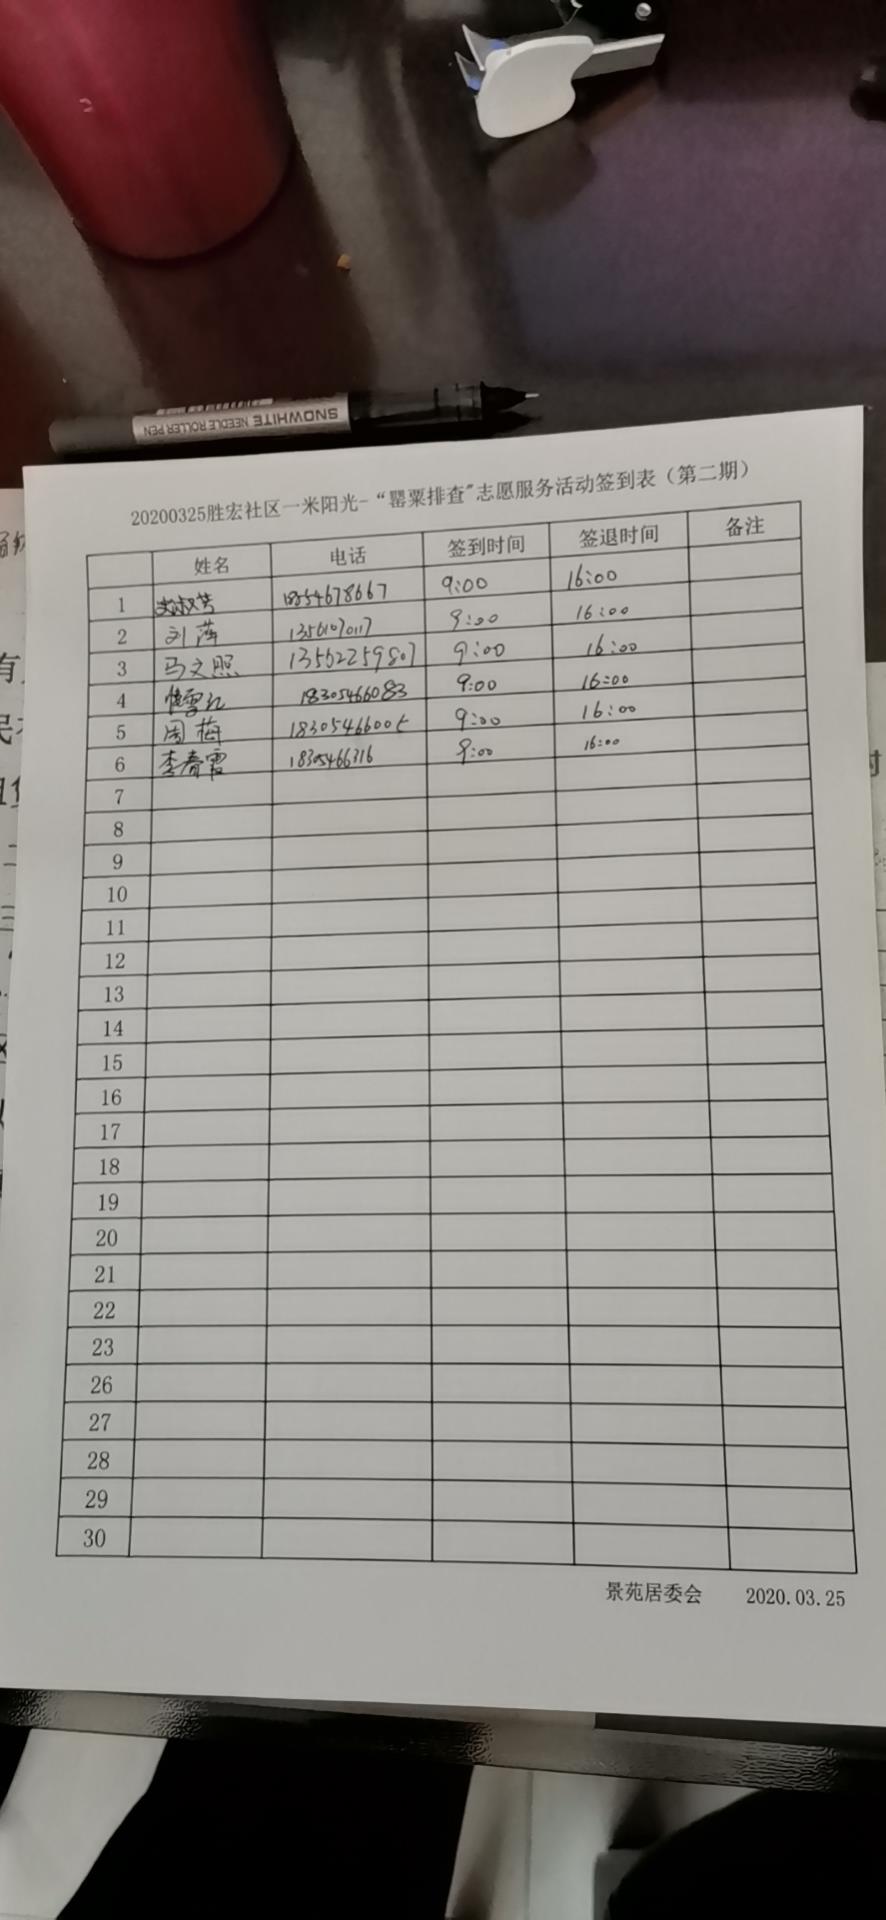 SNOWHITE NEEDLE ROLLER PEN
20200325胜宏社区一米阳光-“罂粟排查"志愿服务活动签到表（第二期）
姓名 电话 签到时间 签退时间 备注
1 9:00 16:00
2 刘萍 9:00 16:00
3 马文照 13562259807 9:00 16:00
4 18305466083 9:00 16:00
5 周梅 9:00 16:00
6 李春霞 18305466316 9:00 16:00
7
8
9
10
11
12
13
14
15
16
17
18
19
20
21
22
23
26
27
28
29
30
景苑居委会 2020.03.25